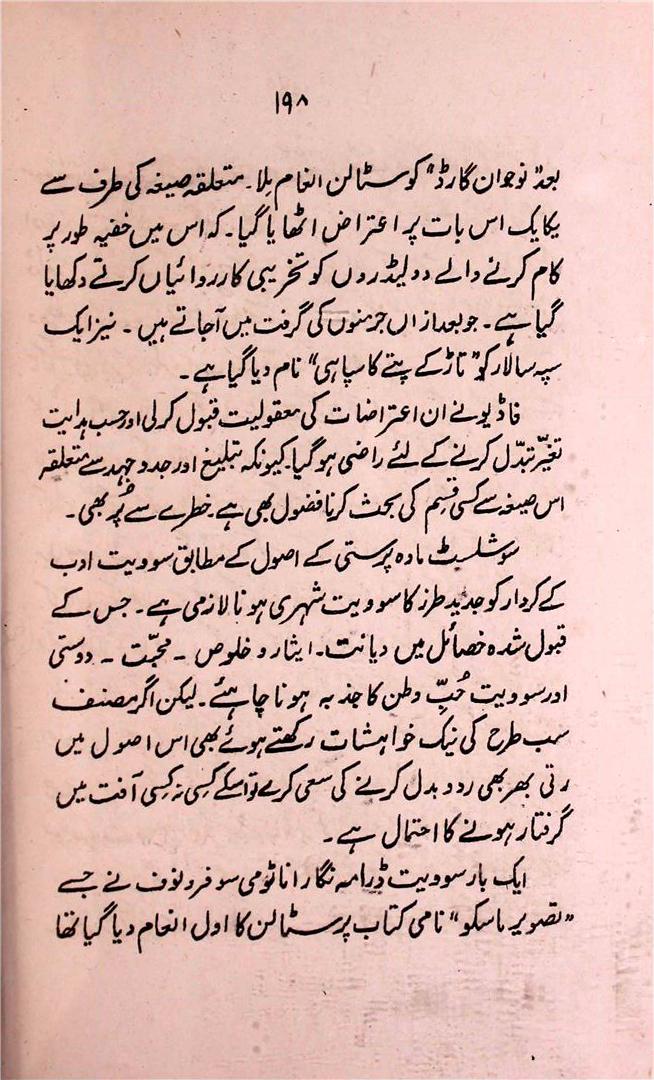 ۱۹۸
بعد "نوجوان گارڈ" کو سٹالن انعام ملا۔ متعلقہ صیغہ کی طرف سے
یکایک اس بات پر اعتراض اٹھایا گیا۔ کہ اس میں خفیہ طور پر
کام کرنے والے دو لیڈروں کو تخریبی کارروائیاں کرتے دکھایا
گیا ہے۔ جو بعد ازاں جرمنوں کی گرفت میں آجاتے ہیں۔ نیز ایک
سپہ سالار کو "تاڑ کے پتے کا سپاہی" نام دیا گیا ہے۔
فاڈیو نے ان اعتراضات کی معقولیت قبول کرلی اور حسب ہدایت
تغیّر تبدّل کرنے کے لئے راضی ہوگیا۔ کیونکہ تبلیغ اور جدوجہد سے متعلقہ
اس صیغہ سے کسی قسم کی بحث کرنا فضول بھی ہے۔ خطرے سے پُر بھی۔
سوشلسٹ مادہ پرستی کے اصول کے مطابق سوویت ادب
کے کردار کو جدید طرز کا سوویت شہری ہونا لازمی ہے۔ جس کے
قبول شدہ خصائل میں دیانت۔ ایثار و خلوص ۔ محبّت ۔ دوستی
اور سوویت حُبِّ وطن کا جذبہ ہونا چاہئے۔ لیکن اگر مصنف
سب طرح کی نیک خواہشات رکھتے ہوئے بھی اس اصول میں
رتی بھر بھی ردوبدل کرنے کی سعی کرے تو اسکے کسی نہ کسی آفت میں
گرفتار ہونے کا احتمال ہے۔
ایک بار سوویت ڈرامہ نگار اناٹومی سوفرونوف نے جسے
"تصویر ماسکو" نامی کتاب پر سٹالن کا اول انعام دیا گیا تھا